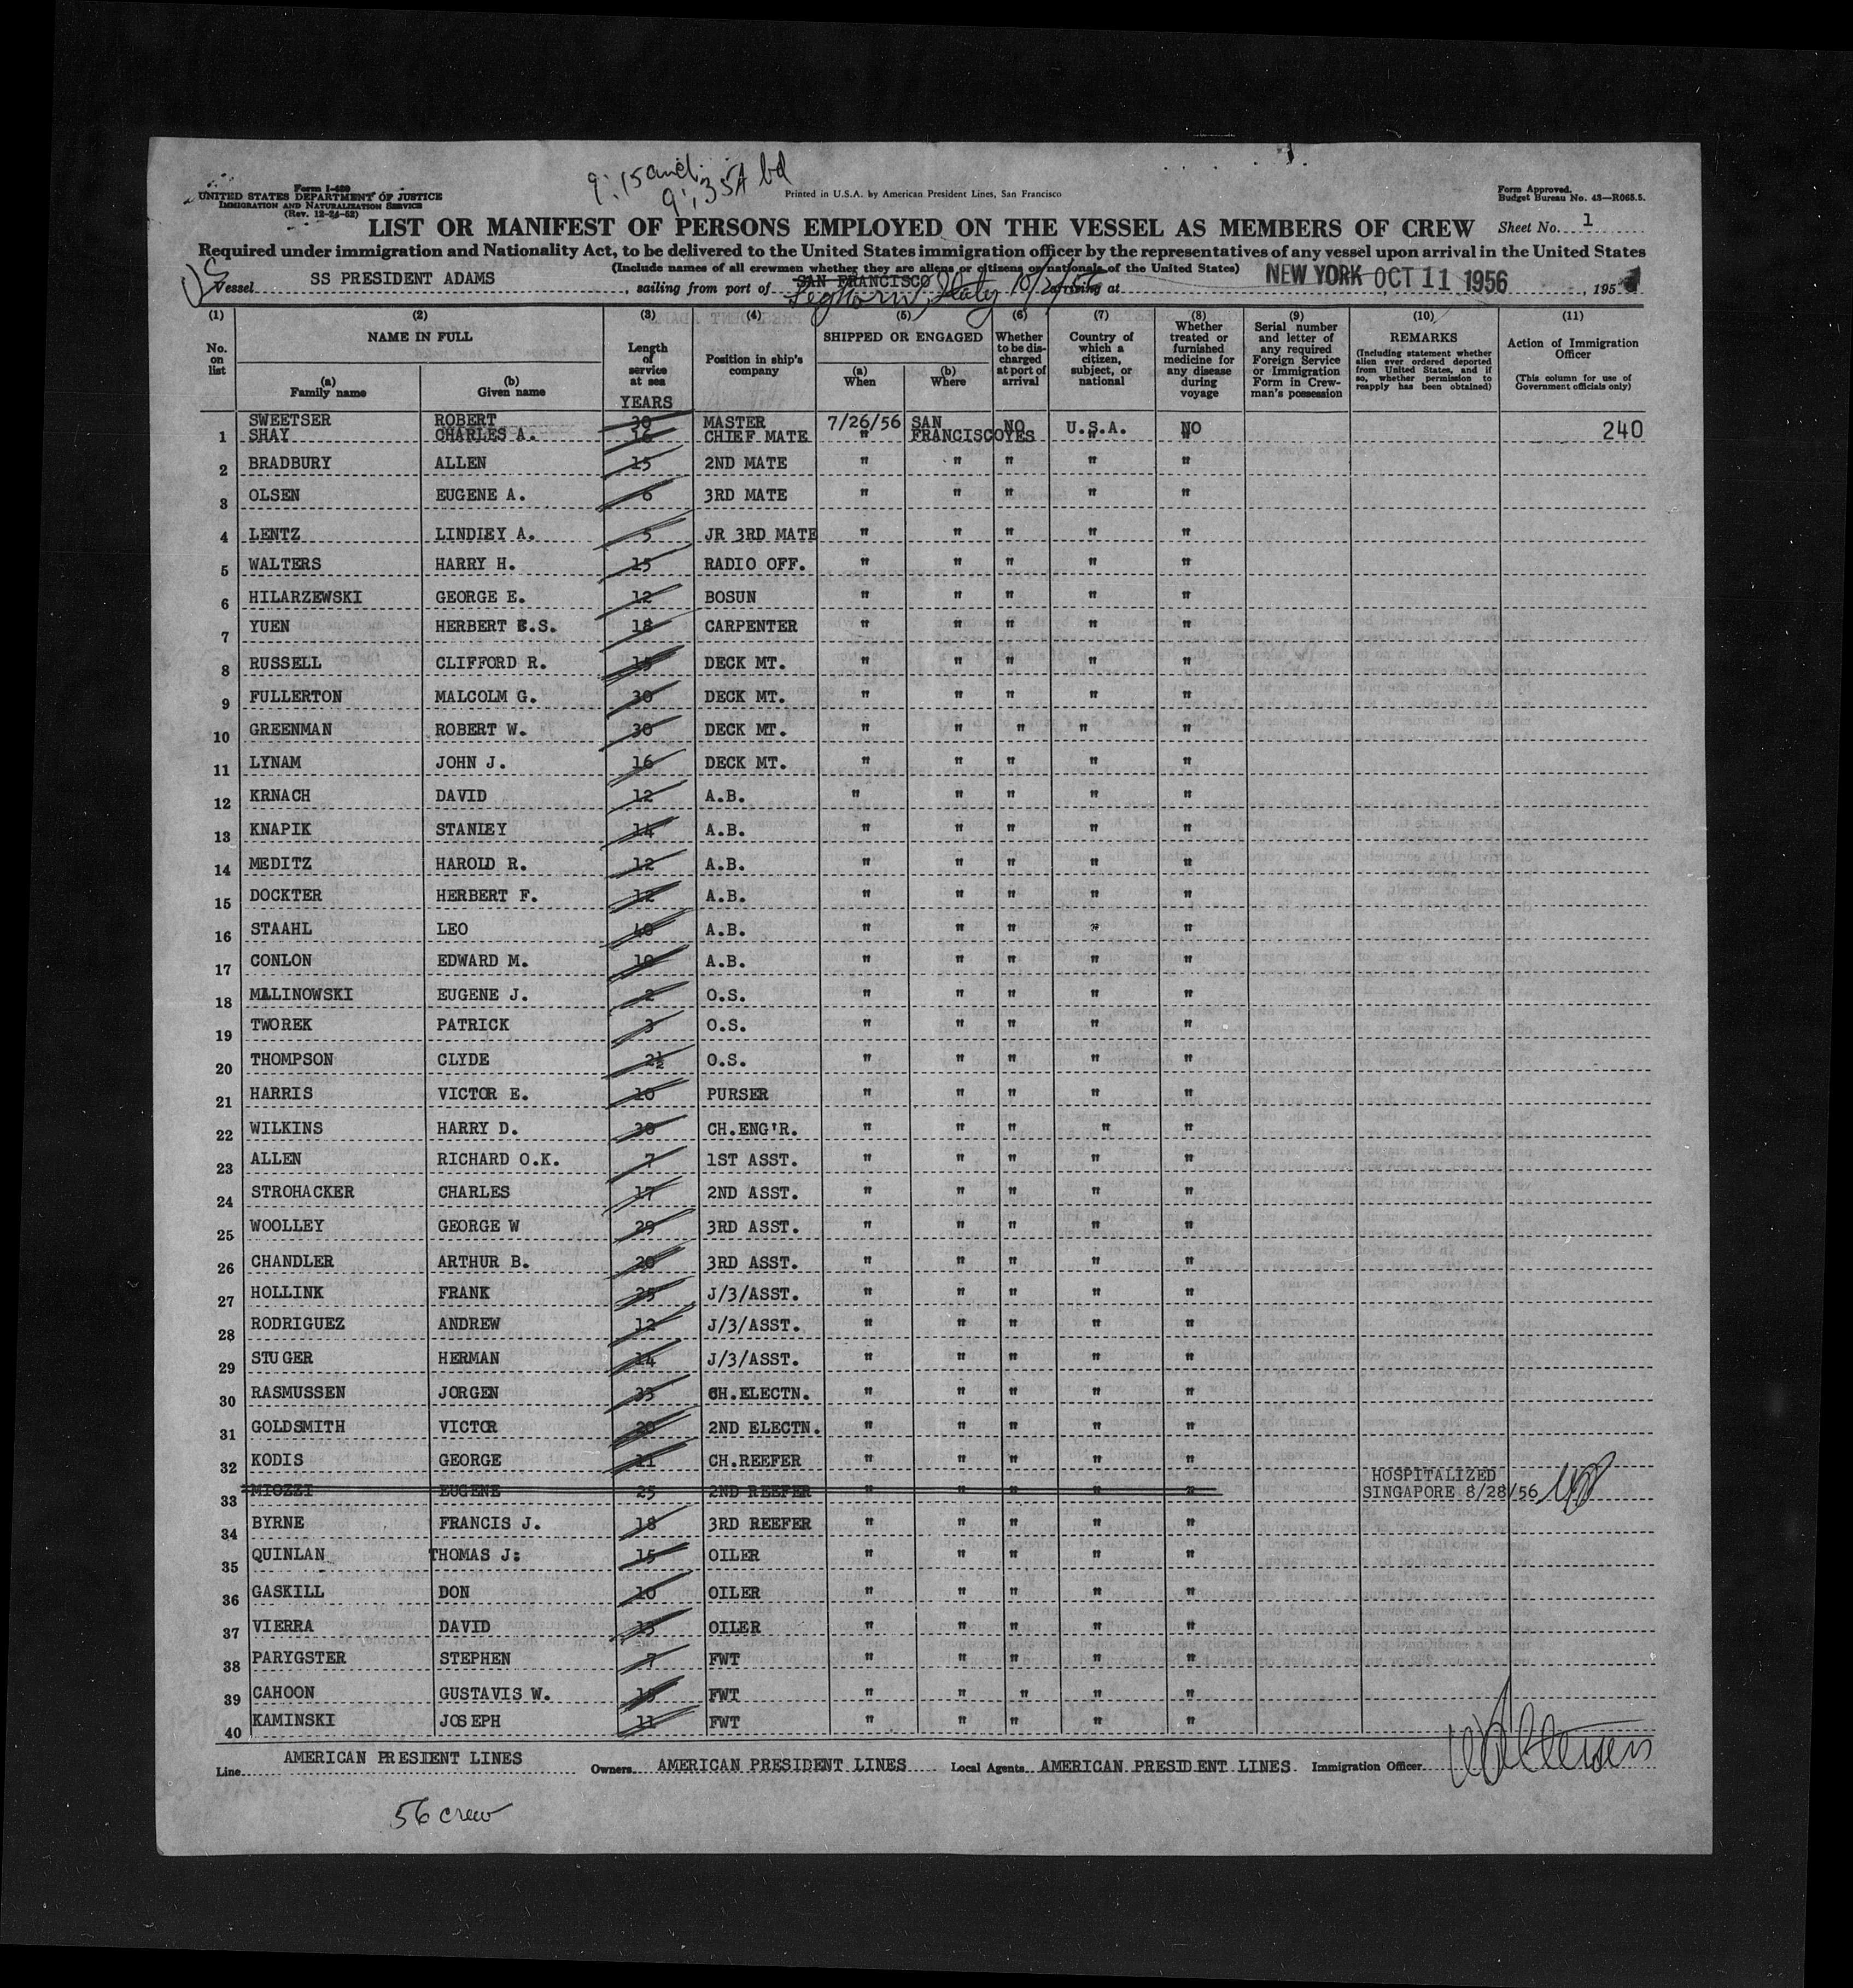 9:15 and
9:35A bd
Form I-489
UNITED STATES DEPARTMENT OF JUSTICE
IMMIGRATION AND NATURALIZATION SERVICE
(Rev. 12-24-52)
Printed in U.S.A. by American President Lines, San Francisco
Form Approved.
Budget Bureau No. 43—R065.5.
LIST OR MANIFEST OF PERSONS EMPLOYED ON THE VESSEL AS MEMBERS OF CREW Sheet No. 1
Required under immigration and Nationality Act, to be delivered to the United States immigration officer by the representatives of any vessel upon arrival in the United States
(Include names of all crewmen whether they are aliens or citizens or nationals of the United States)
Vessel SS PRESIDENT ADAMS, sailing from port of SAN FRANCISCO Leghorn, Italy 10/2/56 arriving at NEW YORK OCT 11 1956, 195
(1) (2) (3) (4) (5) (6) (7) (8) (9) (10) (11)
No. on list
NAME IN FULL
(a) Family name
(b) Given name
Length of service at sea
YEARS
Position in ship's company
SHIPPED OR ENGAGED
(a) When
(b) Where
Whether to be discharged at port of arrival
Country of which a citizen, subject, or national
Whether treated or furnished medicine for any disease during voyage
Serial number and letter of any required Foreign Service or Immigration Form in Crewman's possession
REMARKS
(Including statement whether alien ever ordered deported from United States, and if so, whether permission to reapply has been obtained)
Action of Immigration Officer
(This column for use of Government officials only)
SWEETSER ROBERT 30 MASTER 7/26/56 SAN NO U.S.A. NO
1 SHAY CHARLES A. 16 CHIEF MATE " FRANCISCO YES " " 240
2 BRADBURY ALLEN 15 2ND MATE " " " " "
3 OLSEN EUGENE A. 6 3RD MATE " " " " "
4 LENTZ LINDLEY A. 5 JR 3RD MATE " " " " "
5 WALTERS HARRY H. 15 RADIO OFF. " " " " "
6 HILARZEWSKI GEORGE E. 12 BOSUN " " " " "
7 YUEN HERBERT E.S. 18 CARPENTER " " " " "
8 RUSSELL CLIFFORD R. 15 DECK MT. " " " " "
9 FULLERTON MALCOLM G. 30 DECK MT. " " " " "
10 GREENMAN ROBERT W. 30 DECK MT. " " " " "
11 LYNAM JOHN J. 16 DECK MT. " " " " "
12 KRNACH DAVID 12 A.B. " " " " "
13 KNAPIK STANLEY 14 A.B. " " " " "
14 MEDITZ HAROLD R. 12 A.B. " " " " "
15 DOCKTER HERBERT F. 12 A.B. " " " " "
16 STAAHL LEO 40 A.B. " " " " "
17 CONLON EDWARD M. 10 A.B. " " " " "
18 MALINOWSKI EUGENE J. 2 O.S. " " " " "
19 TWOREK PATRICK 3 O.S. " " " " "
20 THOMPSON CLYDE 2½ O.S. " " " " "
21 HARRIS VICTOR E. 10 PURSER " " " " "
22 WILKINS HARRY D. 30 CH.ENG'R. " " " " "
23 ALLEN RICHARD O.K. 7 1ST ASST. " " " " "
24 STROHACKER CHARLES 17 2ND ASST. " " " " "
25 WOOLLEY GEORGE W 29 3RD ASST. " " " " "
26 CHANDLER ARTHUR B. 20 3RD ASST. " " " " "
27 HOLLINK FRANK 25 J/3/ASST. " " " " "
28 RODRIGUEZ ANDREW 12 J/3/ASST. " " " " "
29 STUGER HERMAN 14 J/3/ASST. " " " " "
30 RASMUSSEN JORGEN 33 CH.ELECTN. " " " " "
31 GOLDSMITH VICTOR 20 2ND ELECTN. " " " " "
32 KODIS GEORGE 11 CH.REEFER " " " " "
33 MIOZZI EUGENE 25 2ND REEFER " " " " " HOSPITALIZED SINGAPORE 8/28/56
34 BYRNE FRANCIS J. 18 3RD REEFER " " " " "
35 QUINLAN THOMAS J: 15 OILER " " " " "
36 GASKILL DON 10 OILER " " " " "
37 VIERRA DAVID 13 OILER " " " " "
38 PARYGSTER STEPHEN 7 FWT " " " " "
39 CAHOON GUSTAVIS W. 15 FWT " " " " "
40 KAMINSKI JOSEPH 11 FWT " " " " "
Line AMERICAN PRESIENT LINES Owners AMERICAN PRESIDENT LINES Local Agents AMERICAN PRESIDENT LINES. Immigration Officer
56 crew